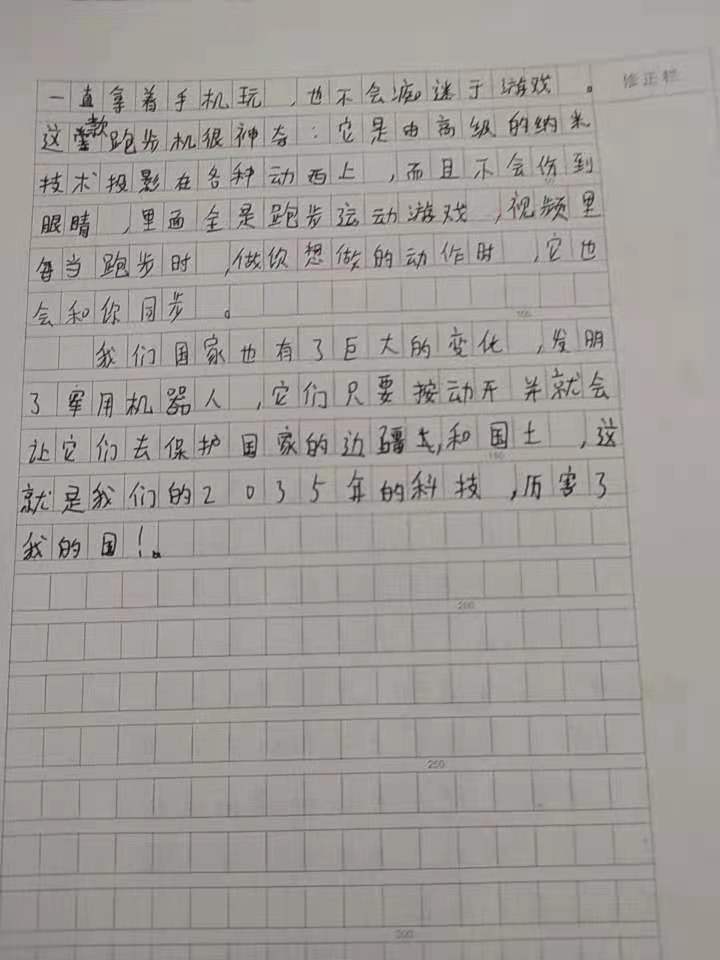 修正栏
一直拿着手机玩，也不会痴迷于游戏。
这款跑步机很神奇：它是由高级的纳米
技术投影在各种动西上，而且不会伤到
眼睛，里面全是跑步运动游戏，视频里
每当跑步时，做你想做的动作时，它也
会和你同步。
100
我们国家也有了巨大的变化，发明
了军用机器人，它们只要按动开关就会
让它们去保护国家的边疆，和国土，这
150
就是我们的2035年的科技，厉害了
我的国！。
200
250
300